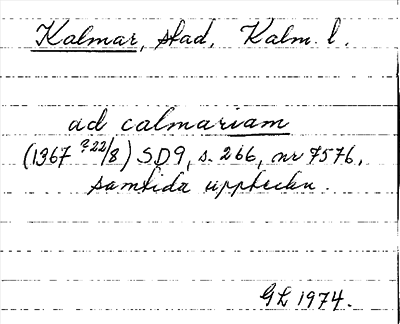 Kalmar, stad, Kalm. l.
ad calmariam
(1367 ?22/8) SD9, s. 266, nr 7576,
samtida uppteckn.
GL 1974.